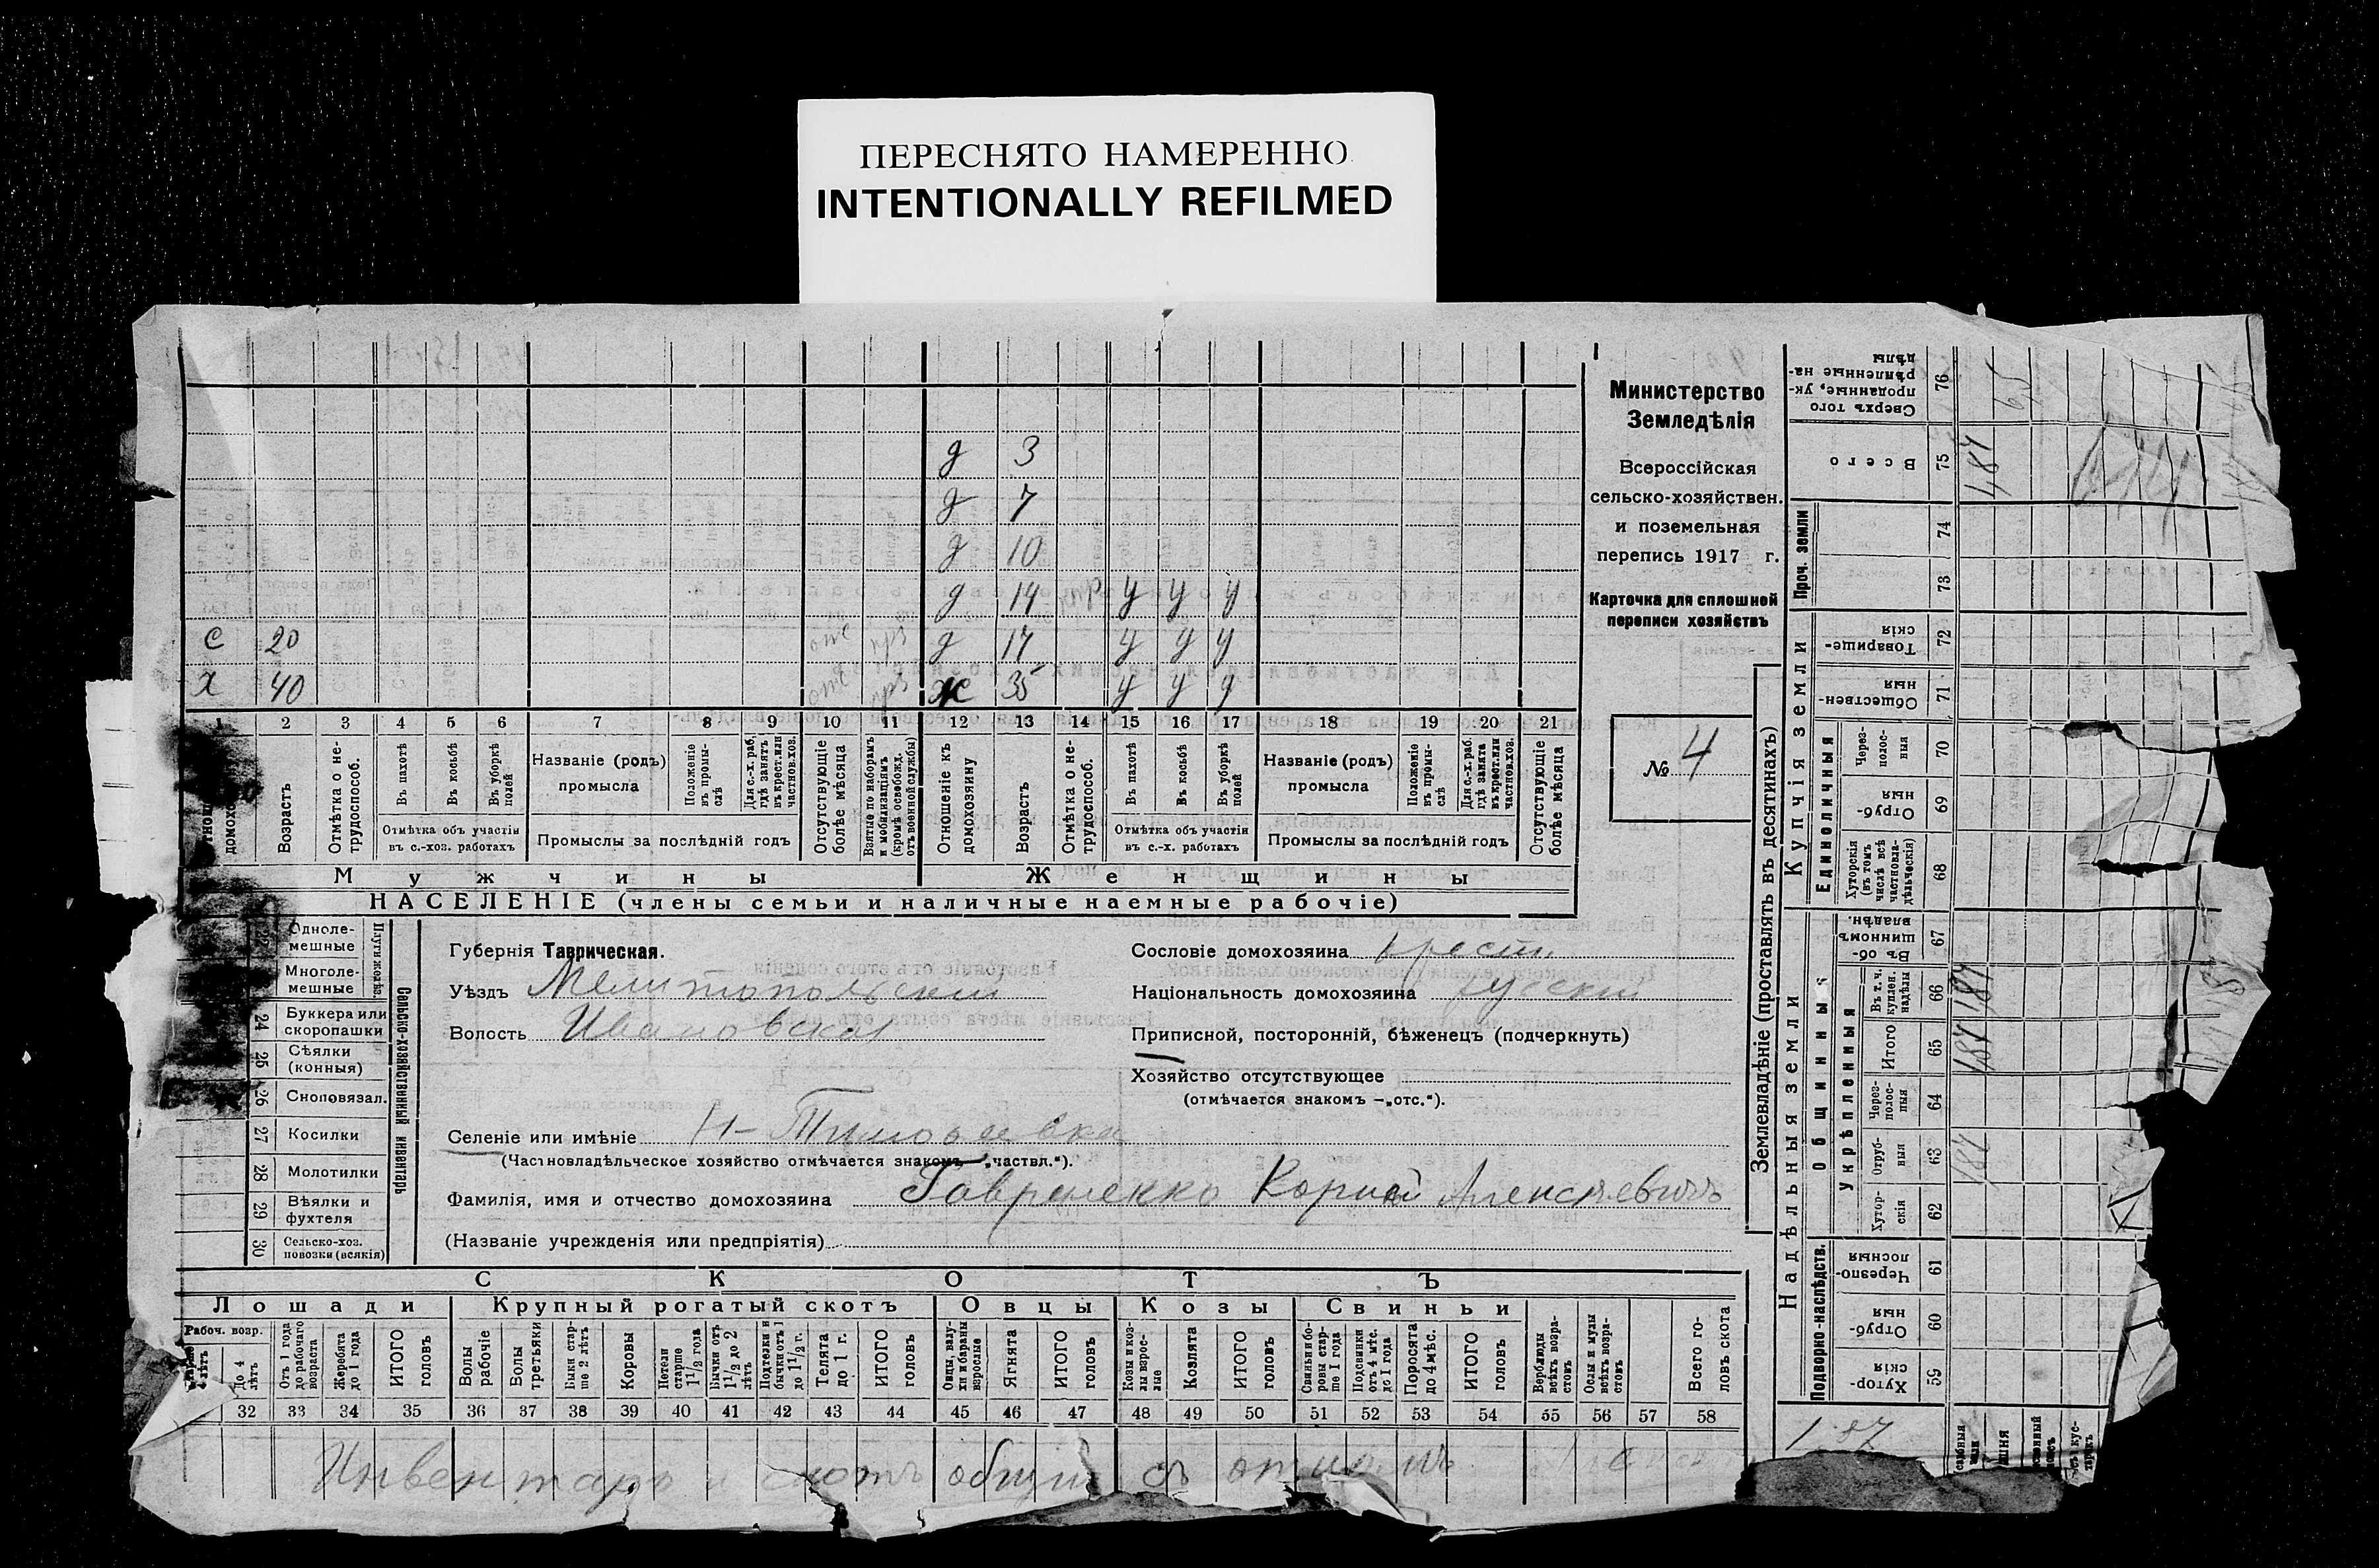 ПЕРЕСНЯТО НАМЕРЕННО
INTENTIONALLY REFILMED
Министерство
Земледѣлія
Всероссійская
сельско-хозяйствен.
и поземельная
перепись 1917 г.
Карточка для сплошной
переписи хозяйствъ
№ 4
д 3
д 7
д 10
д 14 у у у
с 20 отс д 17 у у у
х 40 отс ж 35 у у у
1 2 3 4 5 6 7 8 9 10 11 12 13 14 15 16 17 18 19 20 21
Возрастъ
Отмѣтка о не-
трудоспособ.
Въ пахотѣ
Въ косьбѣ
Въ уборкѣ
полей
Отмѣтка объ участіи
въ с.-хоз. работахъ
Названіе (родъ)
промысла
Положеніе
въ промы-
слѣ
Для с.-х. раб.
гдѣ занятъ
въ крест. или
частнов. хоз.
Промыслы за послѣдній годъ
Отсутствующіе
болѣе мѣсяца
Взятые по наборамъ
и мобилизаціямъ
(кромѣ освобожд.
отъ военной службы)
Отношеніе къ
домохозяину
Возрастъ
Отмѣтка о не-
трудоспособ.
Въ пахотѣ
Въ косьбѣ
Въ уборкѣ
полей
Отмѣтка объ участіи
въ с.-х. работахъ
Названіе (родъ)
промысла
Положеніе
въ промы-
слѣ
Для с.-х. раб.
гдѣ занята
въ крест. или
частнов. хоз.
Промыслы за послѣдній годъ
Отсутствующіе
болѣе мѣсяца
Мужчины Женщины
НАСЕЛЕНІЕ (члены семьи и наличные наемные рабочіе)
Одноле-
мешные
Многоле-
мешные
Плуги желѣз.
24 Буккера или
скоропашки
25 Сѣялки
(конныя)
26 Сноповязал.
27 Косилки
28 Молотилки
29 Вѣялки и
фухтеля
30 Сельско-хоз.
повозки (всякія)
Сельско-хозяйственный инвентарь
Губернія Таврическая.
Уѣздъ Мелитопольскій
Волость Ивановская
Селеніе или имѣніе Н-Тимофеевка
(Частновладѣльческое хозяйство отмѣчается знакомъ „частвл.“).
Фамилія, имя и отчество домохозяина Гавриленко Корней Алексѣевичъ
(Названіе учрежденія или предпріятія)
Сословіе домохозяина крест.
Національность домохозяина русскій
Приписной, посторонній, бѣженецъ (подчеркнуть)
Хозяйство отсутствующее
(отмѣчается знакомъ —„отс.“).
СКОТЪ
Лошади Крупный рогатый скотъ Овцы Козы Свиньи
Рабоч. возр.
До 4
лѣтъ
Отъ 1 года
до рабочаго
возраста
Жеребята
до 1 года
ИТОГО
головъ
Волы
рабочіе
Волы
третьяки
Быки стар-
ше 2 лѣтъ
Коровы
Нетели
старше
1 1/2 года
Бычки отъ
1 1/2 до 2
лѣтъ
Подтелки и
бычки отъ 1
до 1 1/2 г.
Телята
до 1 г.
ИТОГО
головъ
Овцы, валу-
хи и бараны
взрослые
Ягнята
ИТОГО
головъ
Козы и коз-
лы взрос-
лые
Козлята
ИТОГО
головъ
Свиньи и бо-
ровы стар-
ше 1 года
Подсвинки
отъ 4 мѣс.
до 1 года
Поросята
до 4 мѣс.
ИТОГО
головъ
Верблюды
всѣхъ возра-
стовъ
Ослы и мулы
всѣхъ возра-
стовъ
Всего го-
ловъ скота
32 33 34 35 36 37 38 39 40 41 42 43 44 45 46 47 48 49 50 51 52 53 54 55 56 57 58
Инвентарь и скотъ общій съ отцомъ
Землевладѣніе (проставлять въ десятинахъ)
Надѣльныя земли
Купчія земли
Проч. земли
Подворно-наслѣдств.
Общинныя
Укрѣпленныя
Единоличныя
Сверхъ того
проданные, ук-
рѣпленные на-
дѣлы
76
Всего
75 487
74
73
Товарище-
скія
72
Обществен-
ныя
71
Через-
полос-
ныя
70
Отруб-
ныя
69
Хуторскія
(въ томъ
числѣ всѣ
частновла-
дѣльческія)
68
Въ об-
щинномъ
владѣн.
67
Въ т. ч.
куплен.
надѣлы
66 187
Итого
65 187
Через-
полос-
ныя
64
Отруб-
ныя
63 187
Хутор-
скія
62
Черезпо-
лосныя
61
Отруб-
ныя
60
Хутор-
скія
59